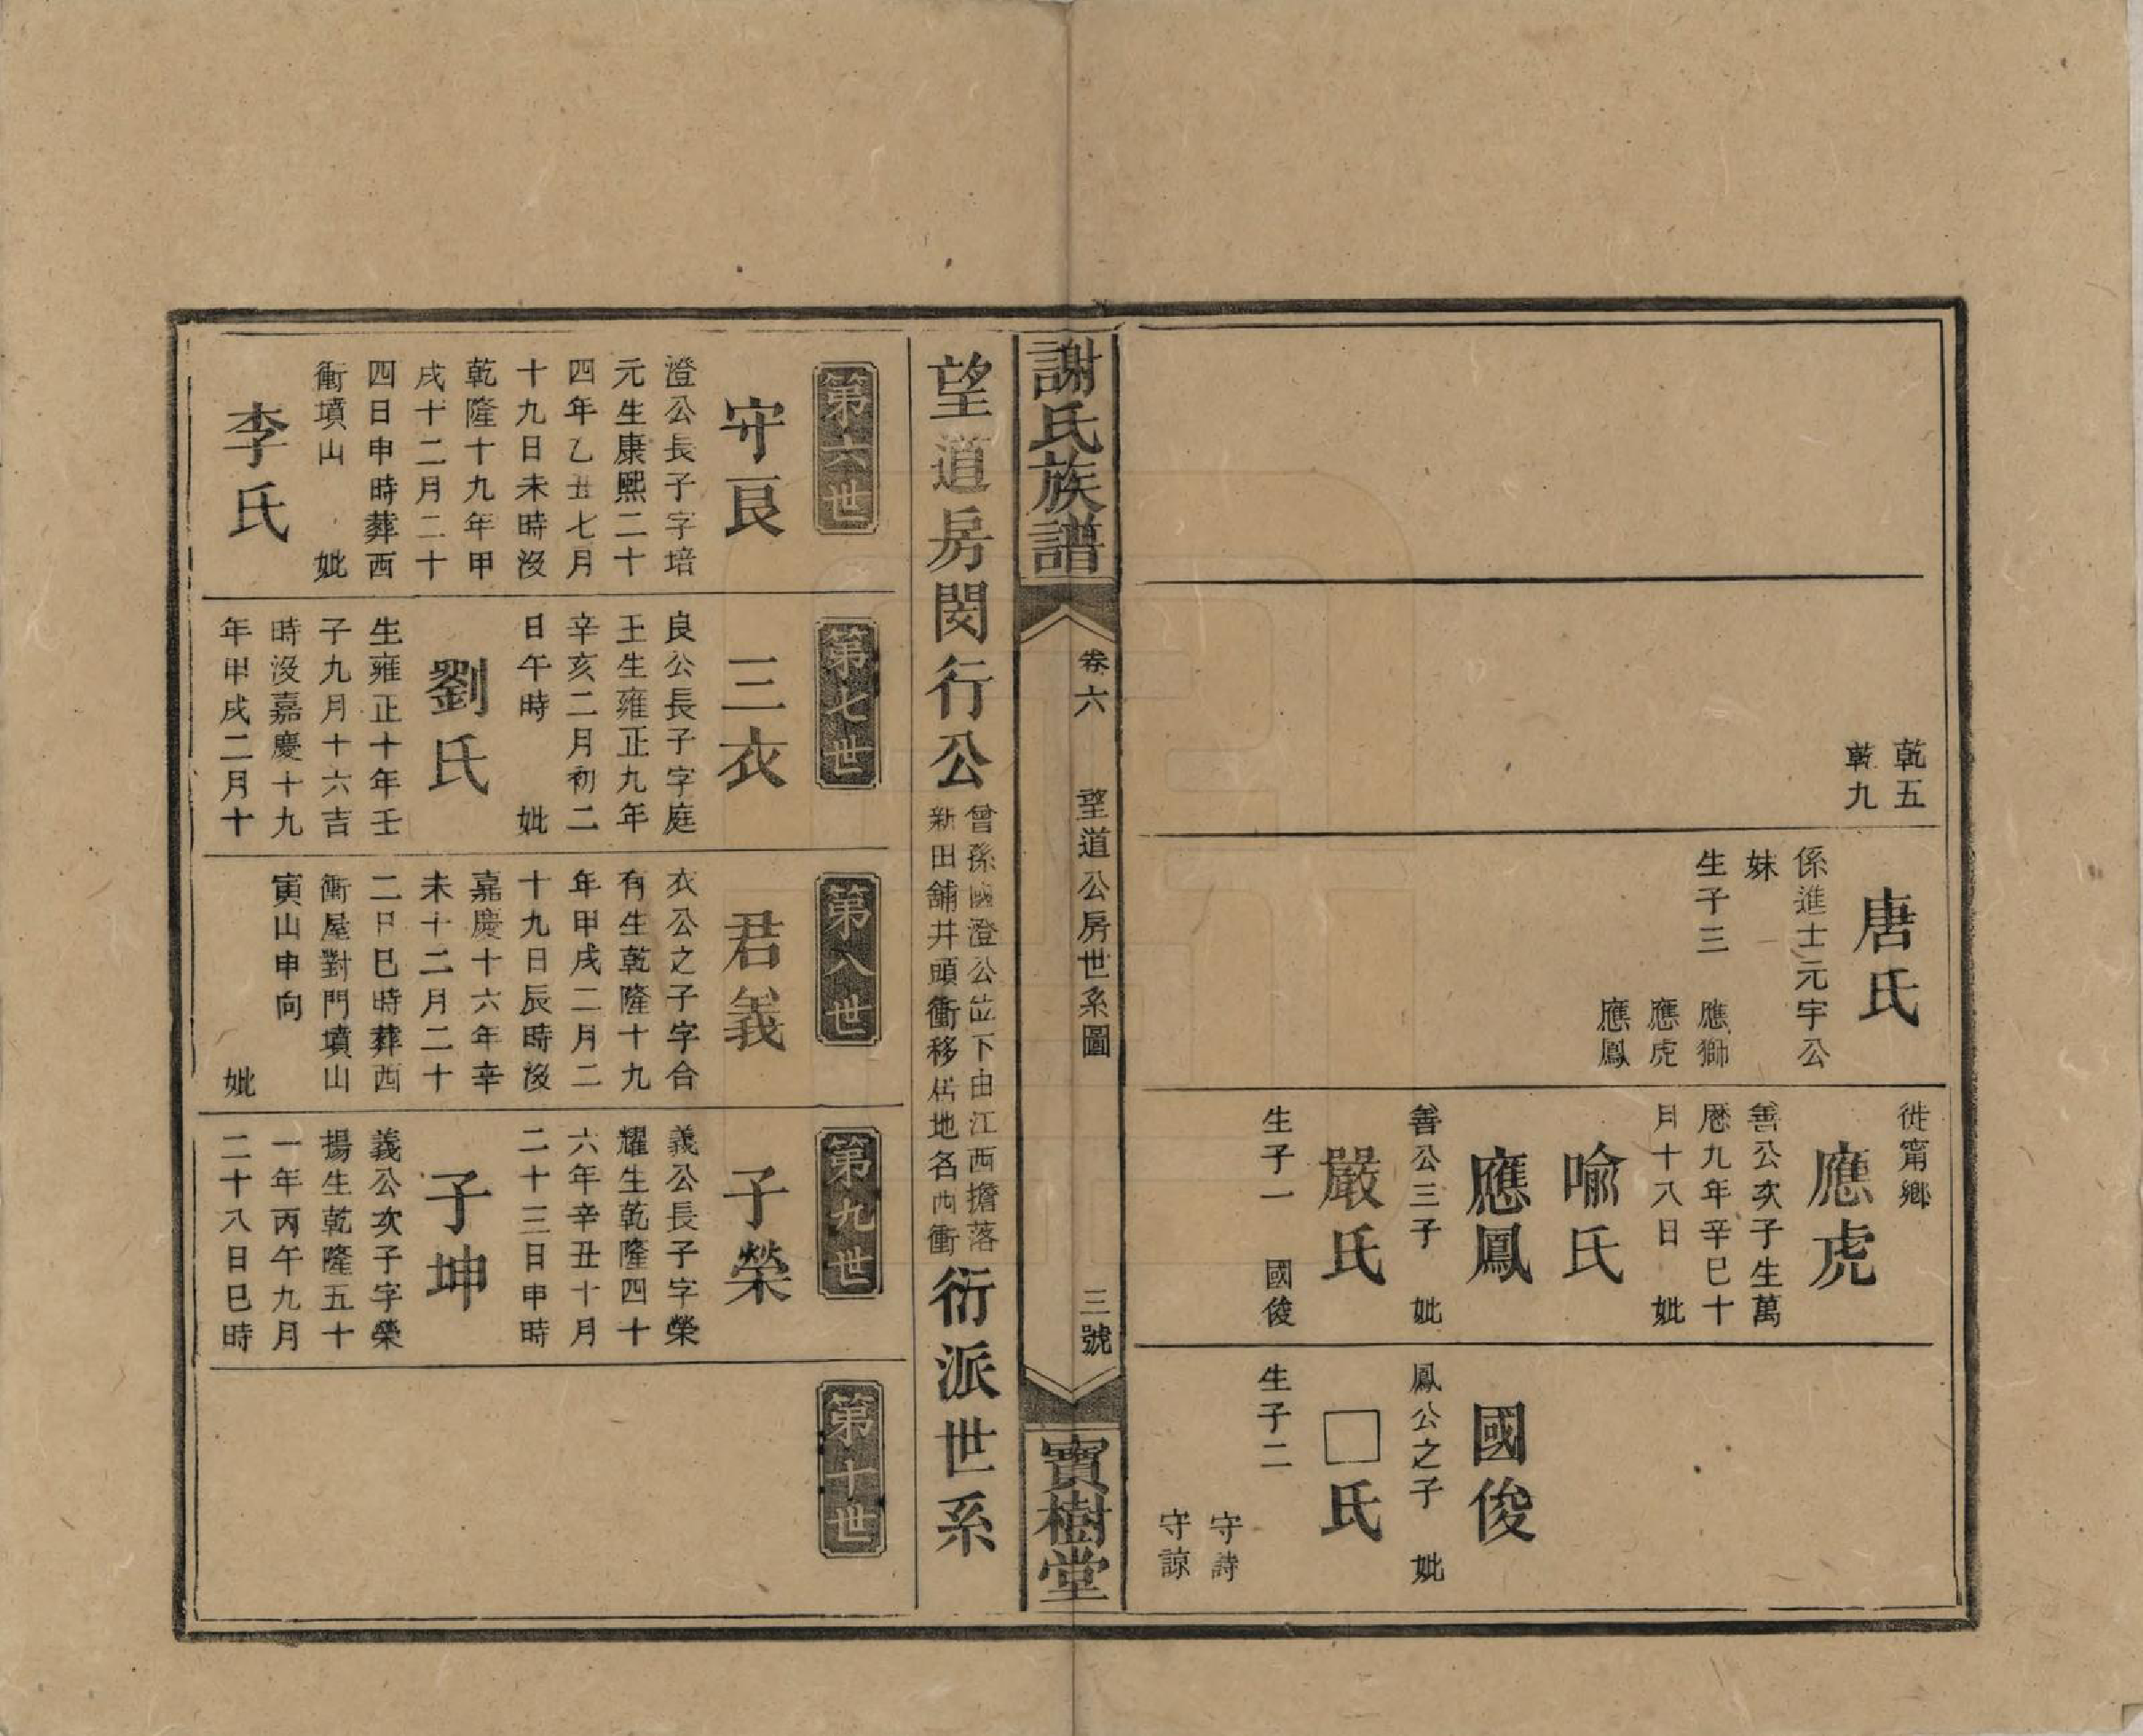 乾五
乾九
唐氏
係進士元宇公
妹
生子三　應獅
應虎
應鳳
徙甯鄉
應虎
善公次子生萬
厯九年辛巳十
月十八日　妣
喻氏
應鳳
善公三子　妣
嚴氏
生子一　國俊
國俊
鳳公之子　妣
□氏
生子二
守詩
守諒
謝氏族譜
卷六　望道公房世系圖　三號
寶樹堂
望道房閔行公
曾孫國澄公位下由江西擔落
新田舖井頭衝移居地名西衝
衍派世系
第六世
守良
澄公長子字培
元生康熙二十
四年乙丑七月
十九日未時沒
乾隆十九年甲
戌十二月二十
四日申時葬西
衝墳山　妣
李氏
第七世
三衣
良公長子字庭
王生雍正九年
辛亥二月初二
日午時　妣
劉氏
生雍正十年壬
子九月十六吉
時沒嘉慶十九
年甲戌二月十
第八世
君義
衣公之子字合
有生乾隆十九
年甲戌二月二
十九日辰時後
嘉慶十六年辛
未十二月二十
二日巳時葬西
衝屋對門墳山
寅山申向
妣
第九世
子榮
義公長子字榮
耀生乾隆四十
六年辛丑十月
二十三日申時
子坤
義公次子字榮
揚生乾隆五十
一年丙午九月
二十八日巳時
第十世